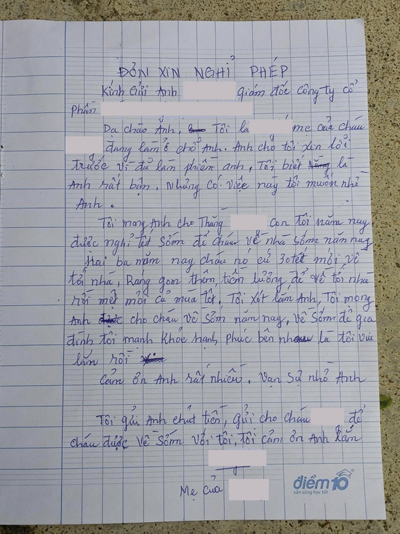 ĐƠN XIN NGHỈ PHÉP
Kính Gửi Anh giám đốc công ty cổ
Phần
Dạ chào Anh, Tôi là mẹ của cháu
đang làm ở chỗ Anh. Anh cho tôi xin lỗi
trước vì đã làm phiền anh, Tôi biết là
Anh rất bận, Nhưng có việc này tôi muốn nhờ
Anh.
Tôi mong Anh cho Thằng con tôi năm nay
được nghỉ tết Sớm để cháu về nhà sớm năm nay
Hai ba năm nay cháu nó cứ 30 tết mới về
tới nhà, Ráng gon thêm tiền lương, để về tới nhà
rồi mệt mỏi cả mùa tết. Tôi xót lắm Anh, Tôi mong
Anh cho cháu về Sớm năm nay, về Sớm để gia
đình tôi mạnh khỏe hạnh phúc bên nhau là tôi vui
lắm rồi
Cảm ơn Anh rất nhiều. Vạn sự nhờ Anh
Tôi gửi Anh chút tiền, gửi cho cháu để
cháu được về Sớm với tôi, tôi cảm ơn Anh lắm
Mẹ của
điểm 10